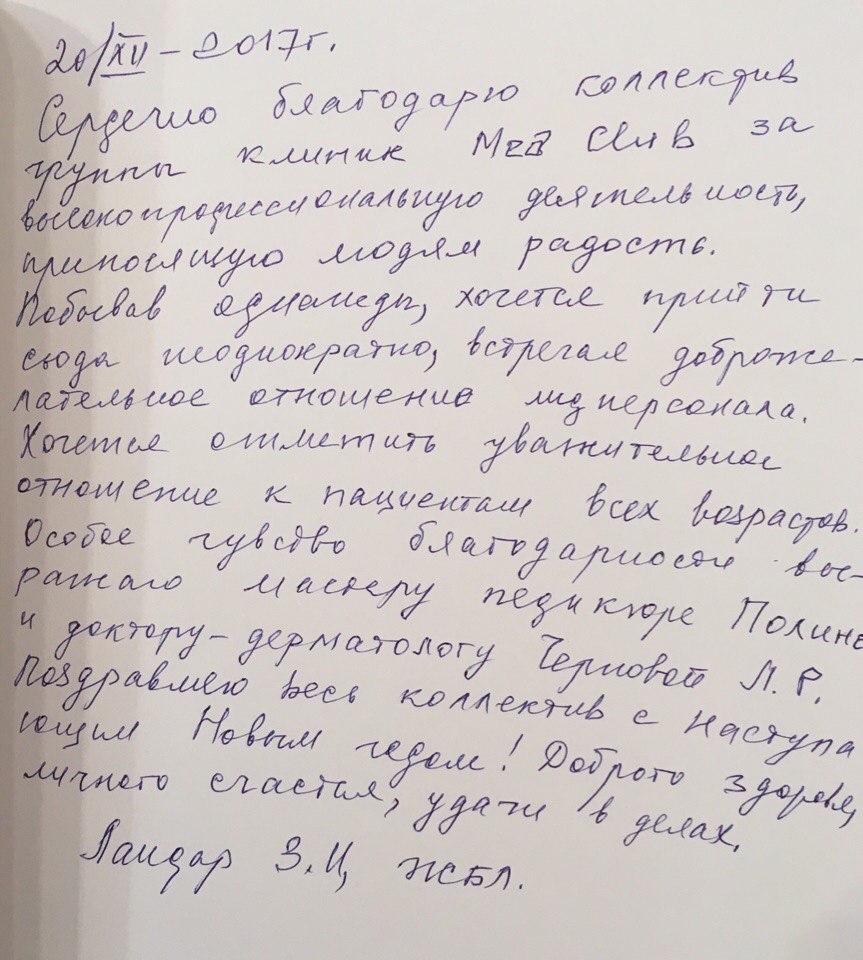 20/XII - 2017г.
Сердечно благодарю коллектив
группы клиник Med Club за
высокопрофессиональную деятельность,
приносящую людям радость.
Побывав однажды, хочется прийти
сюда неоднократно, встречая доброже-
лательное отношение медперсонала.
Хочется отметить уважительное
отношение к пациентам всех возрастов.
Особое чувство благодарности вы-
ражаю мастеру педикюра Полине
и доктору-дерматологу Черновой Л.Р.
Поздравляю весь коллектив с наступа
ющим Новым годом! Доброго здоровья,
личного счастья, удачи в делах.
З.И, ЖБЛ.